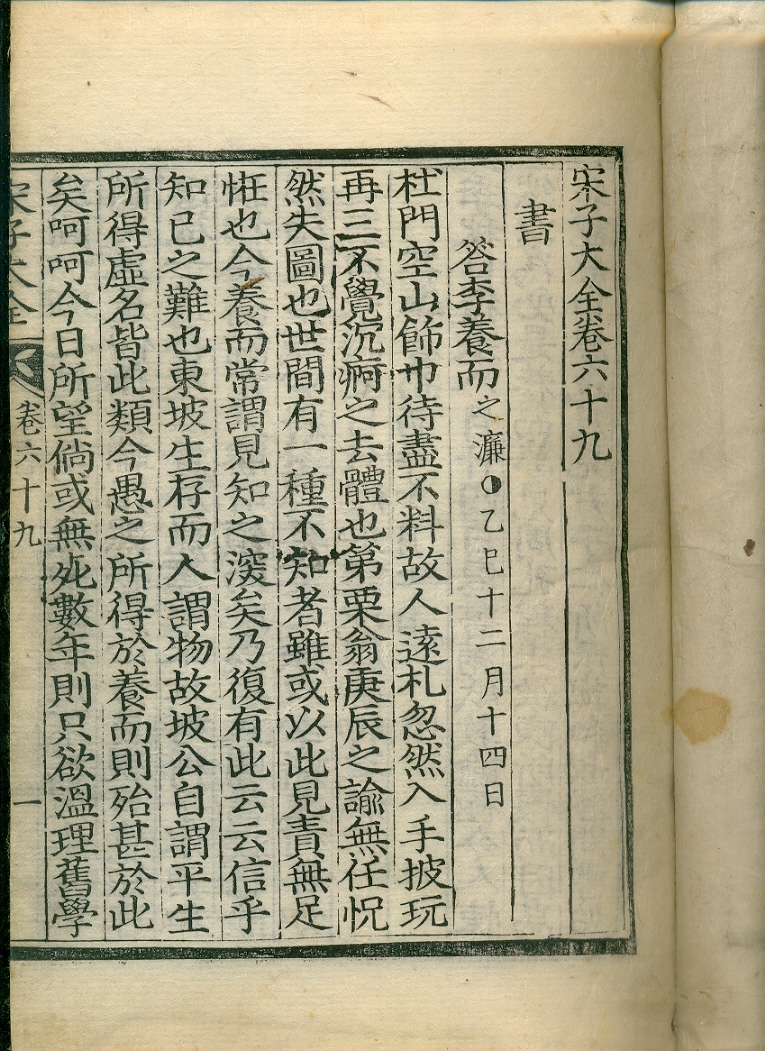 宋子大全卷六十九
書
答李養而之濂◐乙巳十二月十四日
杜門空山飾巾待盡不料故人遠札忽然入手披玩
再三不覺沉痾之去體也第栗翁庚辰之諭無任怳
然失圖也世間有一種不知者雖或以此見責無足
恠也今養而常謂見知之深矣乃復有此云云信乎
知已之難也東坡生存而人謂物故坡公自謂平生
所得虛名皆此類今愚之所得於養而則殆甚於此
矣呵呵今日所望倘或無死數年則只欲溫理舊學
宋子大全 卷六十九 一